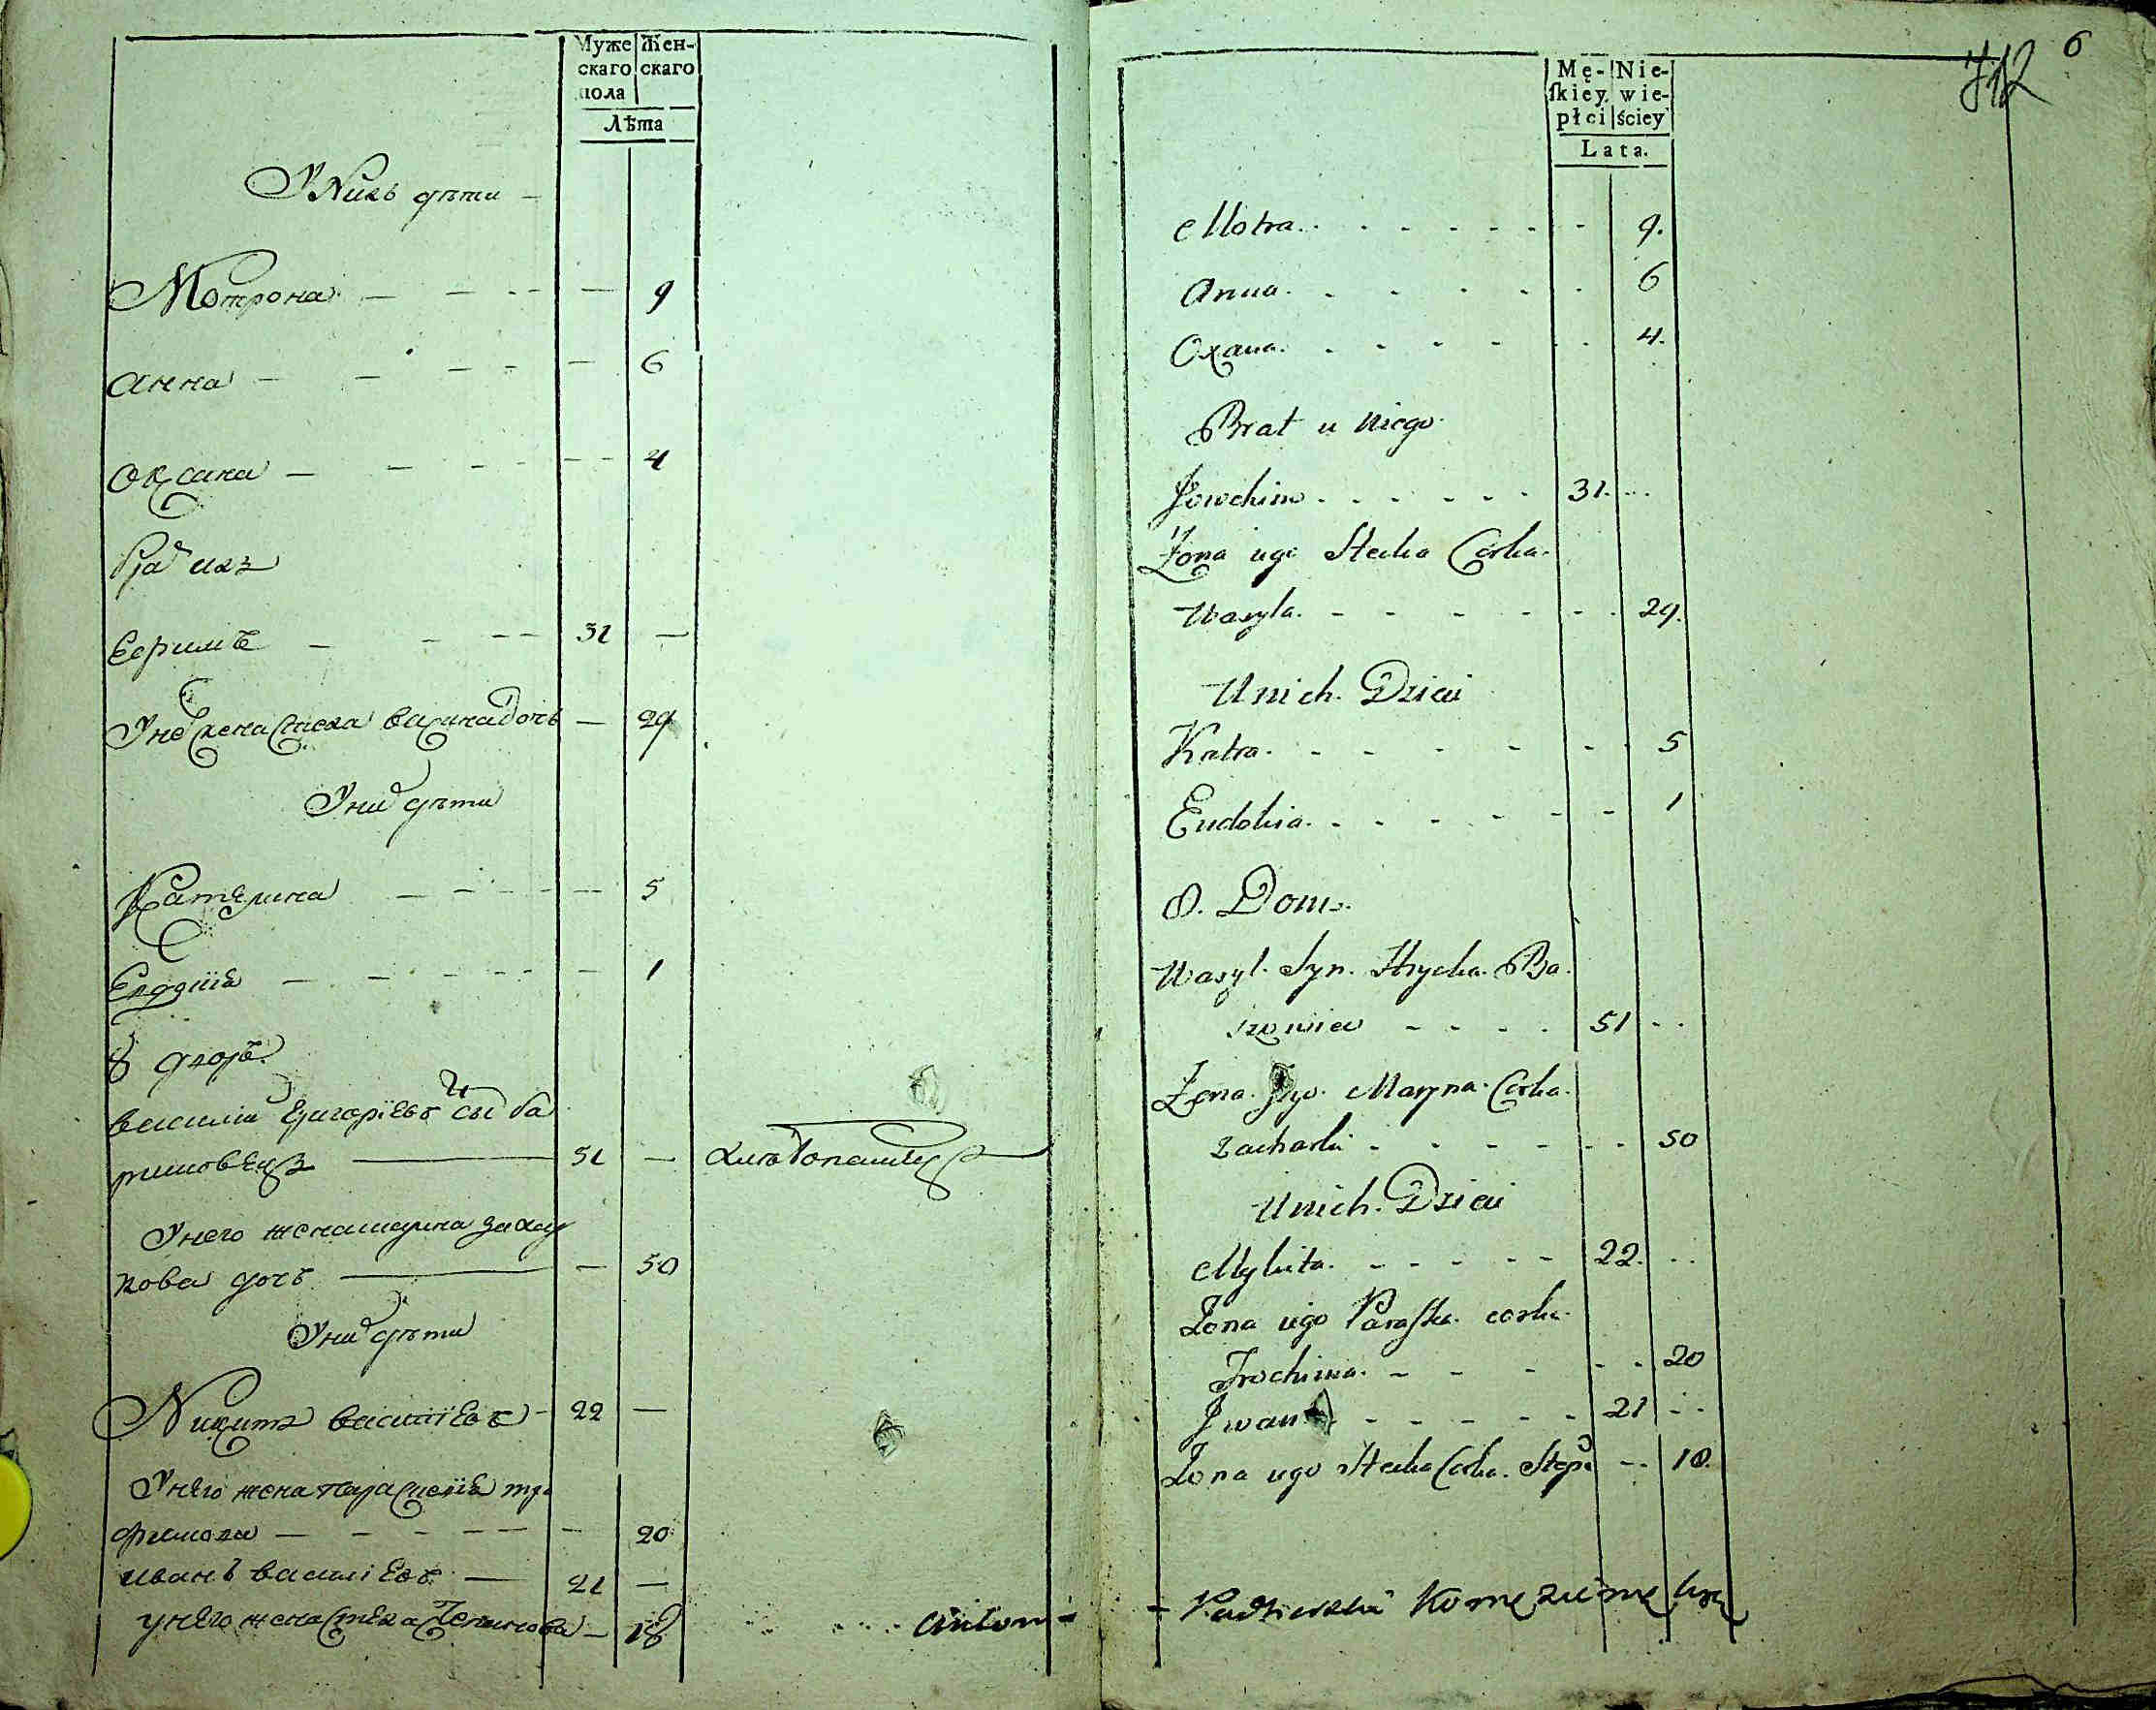 Муже Жен-
скаго скаго
пола
Лѣта
У Нихъ дѣти
Мотрона 9
Анна 6
Оксана 4
Ефимъ 31
У него жена Стеха Василева дочь 29
У них дѣти
Катерина 5
Евдокія 1
8 дворъ
Василій Григоріевъ сынъ Ба
ришовецъ 51
У него жена Марина Захар
кова дочь 50
У них дѣти
Никита Василіевъ 22
У него жена Параскевія Тро
фимова 20
Иванъ Василіевъ 21
У него жена Стеха Степанова 18
Antoni
6
712
Mę- Nie-
ſkiey wie-
płci ściey
Lata.
Motra. 9.
Anna. 6
Oxana. 4.
Brat u niego.
Jowchim 31.
Żona iego Stecha Corka.
Wasyla. 29.
U nich. Dzieci
Katra. 5
Eudokia. 1
8. Dom.
Wasyl. Syn. Hrycka. Ba.
szowiec 51
Żona. Jego. Maryna. Corka.
Zacharki 50
U nich. Dzieci
Mykita. 22.
Żona iego Paraska. corka.
Trochima. 20
Jwan 21
Żona iego Stecha Corka. Stepa 18.